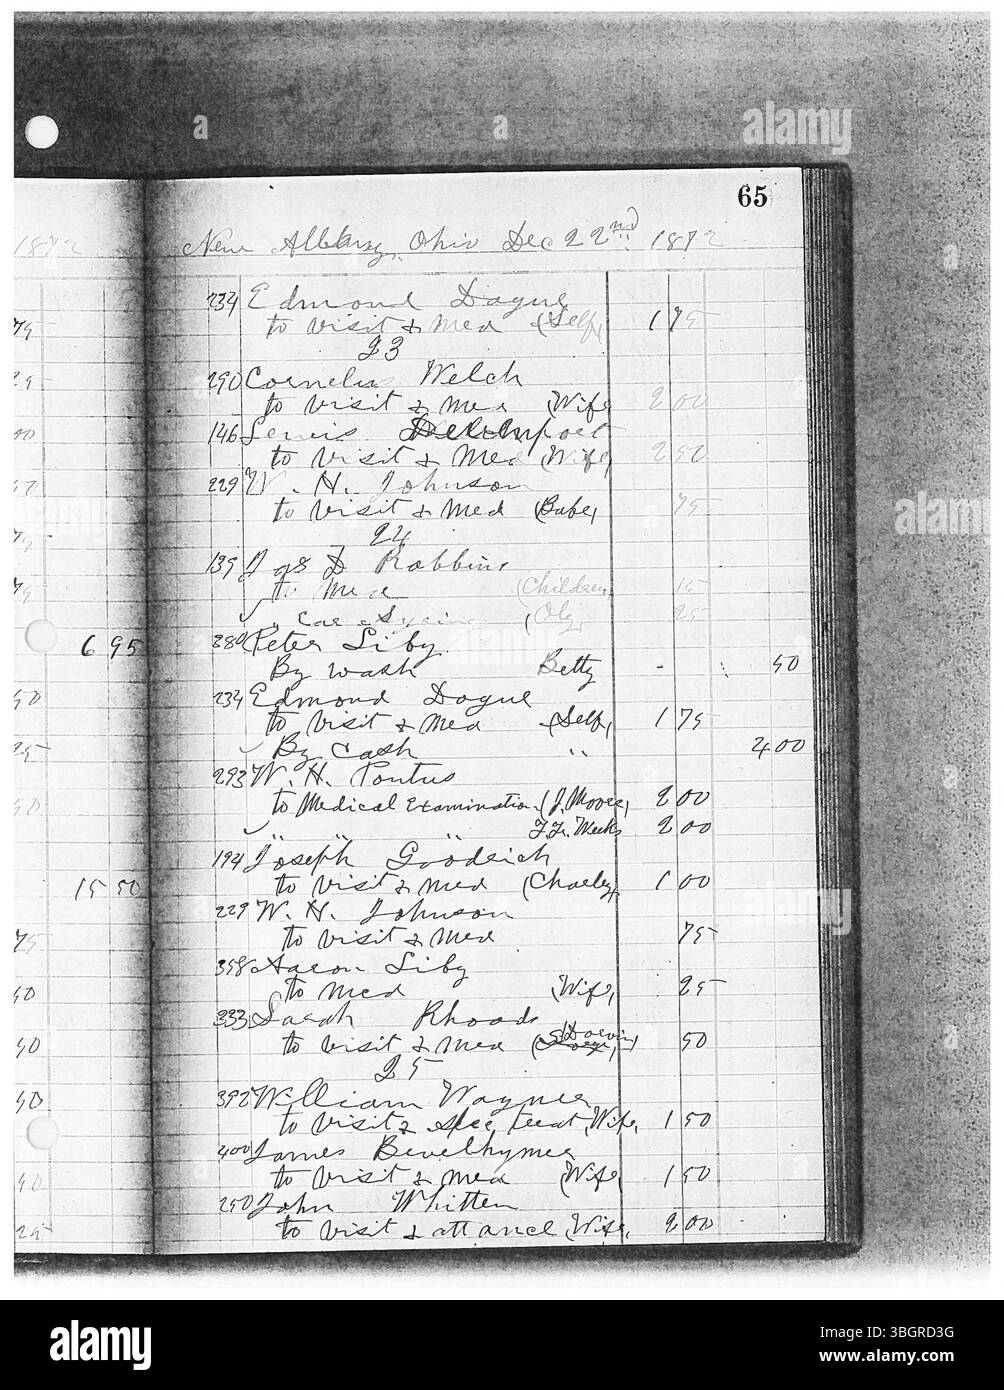 65
1872
New Albany, Ohio Dec 22nd 1872
234 Edmond Dague
to visit & med (Self, 1 75
23
290 Cornelius Welch
to visit & med (Wife 2 00
146 Lewis
to visit & Med (Wife, 2 50
229 W. H. Johnson
to visit & med (Babe, 75
24
139 Jas D Robbins
to Med (Children, 15
" Ear Syringe (Olg, 25
6 95
380 Peter Liby
By wash Betty - 50
234 Edmond Dague
to visit & med (Self, 1 75
By Cash " 4 00
293 W. H. Pontus
to Medical Examination (J. Moore, 2 00
" " " F. Fr. Meeks 2 00
194 Joseph Goodrich
15 50
to visit & med (Charley, 1 00
229 W. H. Johnson
to visit & med 75
358 Aaron Liby
to med (Wife, 25
333 Sarah Rhoads
to visit & med 50
25
392 William Wagner
to visit & treat Wife, 1 50
400 James Bevelhymer
to visit & med (Wife, 1 50
250 John Whitten
to visit & attance (Wife, 2 00
a
alamy
alamy
Image ID: 3BGRD3G
www.alamy.com